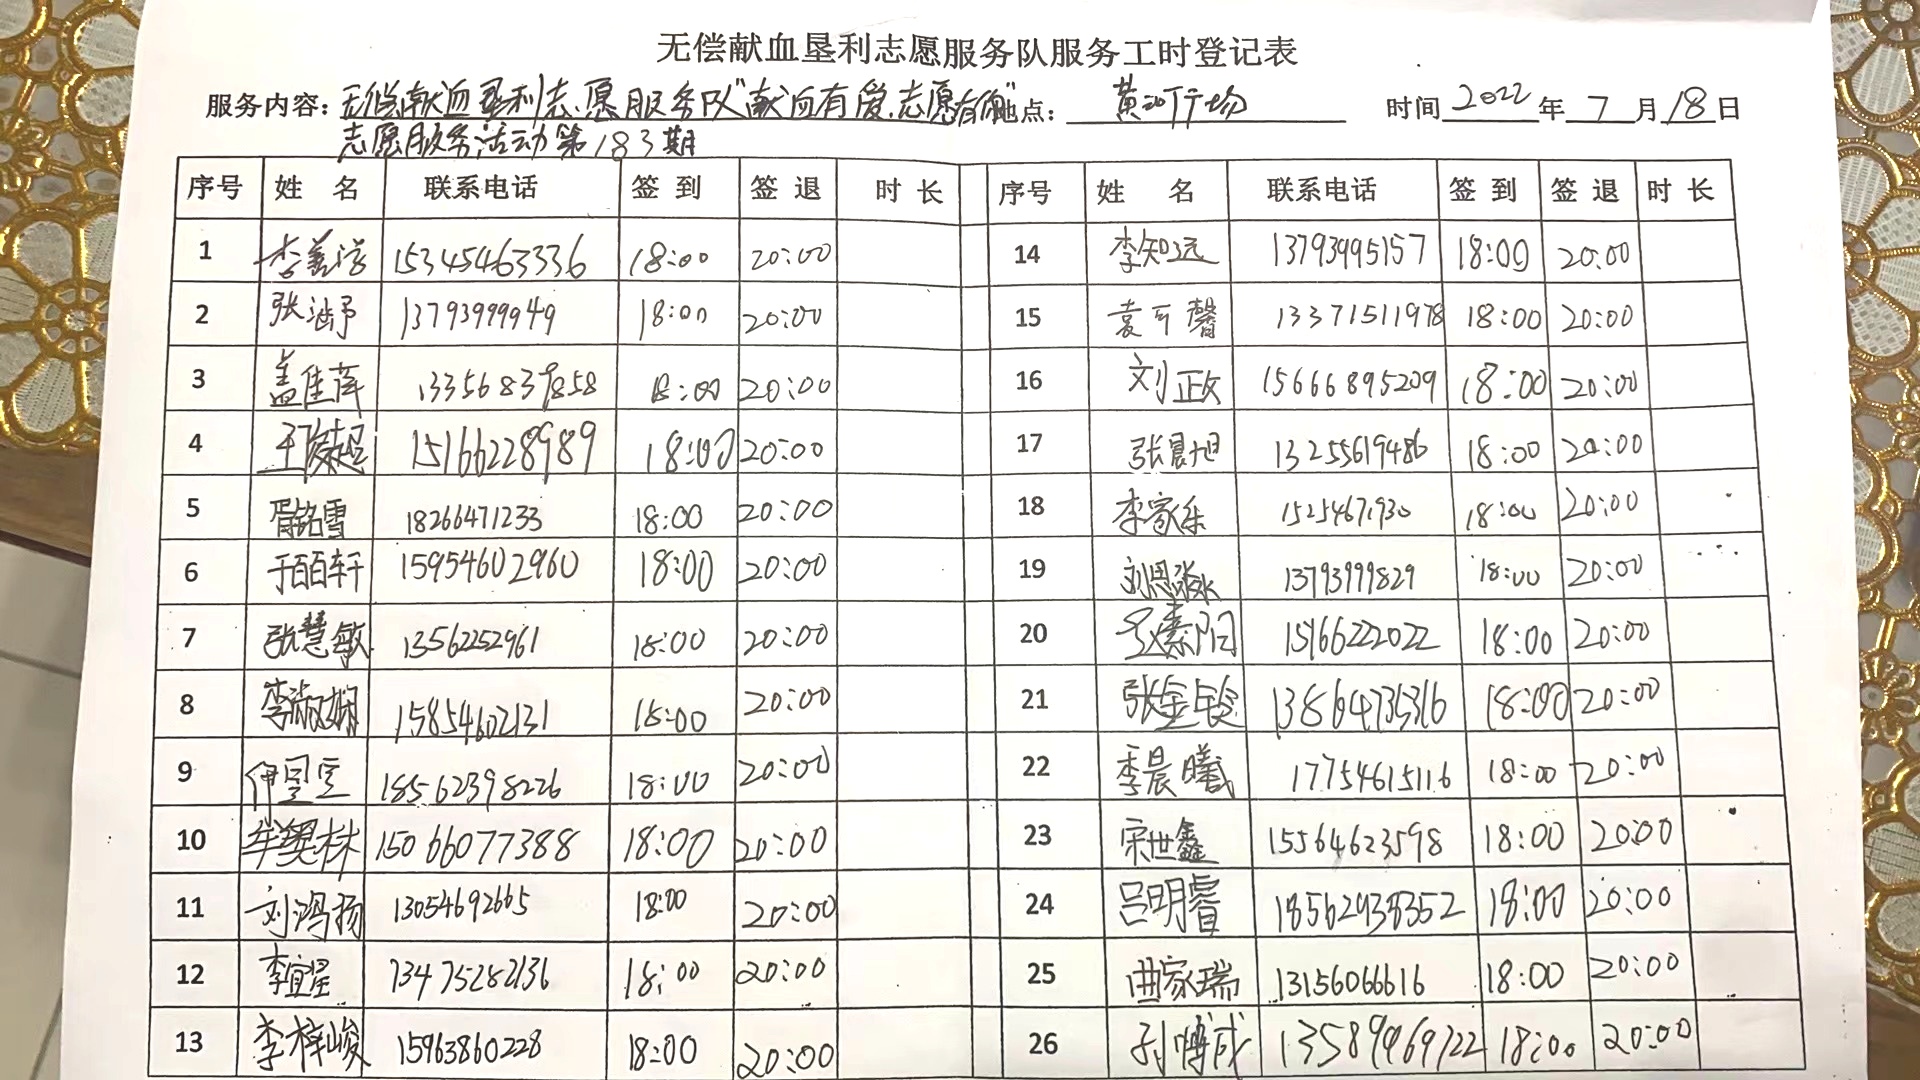 无偿献血垦利志愿服务队服务工时登记表
服务内容：无偿献血垦利志愿服务队"献血有爱、志愿有你" 地点：黄河广场 时间 2022 年 7 月 18 日
志愿服务活动第183期
序号 姓 名 联系电话 签 到 签 退 时 长 序号 姓 名 联系电话 签 到 签 退 时 长
1 15345463336 18:00 20:00 14 李知远 13793995157 18:00 20:00
2 13793999949 18:00 20:00 15 袁可馨 13371511978 18:00 20:00
3 盖佳莲 13356837858 18:00 20:00 16 刘政 15666895209 18:00 20:00
4 15166228989 18:00 20:00 17 张晨旭 13255619486 18:00 20:00
5 胥铭雪 18266471233 18:00 20:00 18 李家乐 15254671930 18:00 20:00
6 于百轩 15954602960 18:00 20:00 19 13793999829 18:00 20:00
7 张慧敏 13562252961 18:00 20:00 20 15166222022 18:00 20:00
8 李淑娴 15854602131 18:00 20:00 21 18:00 20:00
9 18562398226 18:00 20:00 22 季晨曦 17754615116 18:00 20:00
10 15066077388 18:00 20:00 23 宋世鑫 15564623598 18:00 20:00
11 刘鸿扬 13054692665 18:00 20:00 24 吕明睿 18562938352 18:00 20:00
12 李宜星 13475282136 18:00 20:00 25 曲家瑞 13156066616 18:00 20:00
13 李梓峻 15963860228 18:00 20:00 26 孙博成 13589969722 18:00 20:00